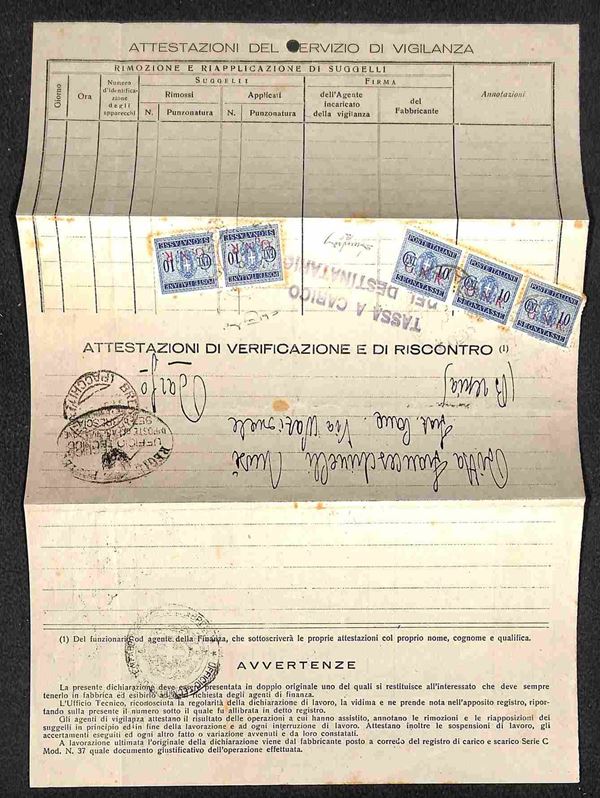 ATTESTAZIONI DEL SERVIZIO DI VIGILANZA
RIMOZIONE E RIAPPLICAZIONE DI SUGGELLI
Giorno
Ora
Numero d'identifica- zione degli apparecchi
SUGGELLI
Rimossi
Applicati
N.
Punzonatura
N.
Punzonatura
FIRMA
dell'Agente incaricato della vigilanza
del Fabbricante
Annotazioni
POSTE ITALIANE
10
SEGNATASSE
POSTE ITALIANE
10
SEGNATASSE
POSTE ITALIANE
10
SEGNATASSE
POSTE ITALIANE
10
SEGNATASSE
POSTE ITALIANE
10
SEGNATASSE
TASSA A CARICO
DEL DESTINATARIO
ATTESTAZIONI DI VERIFICAZIONE E DI RISCONTRO (1)
Ditta Franceschinelli
Via Nazionale
Darfo
(Brescia)
UFFICIO TECNICO
(1) Del funzionario od agente della Finanza, che sottoscriverà le proprie attestazioni col proprio nome, cognome e qualifica.
AVVERTENZE
La presente dichiarazione deve essere presentata in doppio originale uno dei quali si restituisce all'interessato che deve sempre
tenerlo in fabbrica ed esibirlo ad ogni richiesta degli agenti di finanza.
L'Ufficio Tecnico, riconosciuta la regolarità della dichiarazione di lavoro, la vidima e ne prende nota nell'apposito registro, ripor-
tando sulla presente il numero sotto il quale fu allibrata in detto registro.
Gli agenti di vigilanza attestano il risultato delle operazioni a cui hanno assistito, annotano le rimozioni e le riapposizioni dei
suggelli in principio ed in fine della lavorazione e ad ogni interruzione di lavoro. Attestano inoltre le sospensioni di lavoro, gli
accertamenti eseguiti ed ogni altro fatto o variazione avvenuti e da loro constatati.
A lavorazione ultimata l'originale della dichiarazione viene dal fabbricante posto a corredo del registro di carico e scarico Serie C
Mod. N. 37 quale documento giustificativo dell'operazione effettuata.